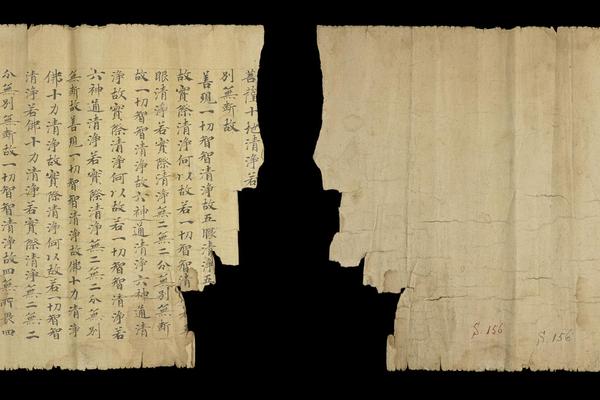 菩薩十地清淨若
別無斷故
善現一切智智清淨故五眼清淨五
故實際清淨何以故若一切智智清
眼清淨若實際清淨無二無二分無別無斷
故一切智智清淨故六神通清淨六神通清
淨故實際清淨何以故若一切智智清淨若
六神通清淨若實際清淨無二無二分無別
無斷故善現一切智智清淨故佛十力清淨
佛十力清淨故實際清淨何以故若一切智智
清淨若佛十力清淨若實際清淨無二無二
分無別無斷故一切智智清淨故四無所畏四
S.156
S.156